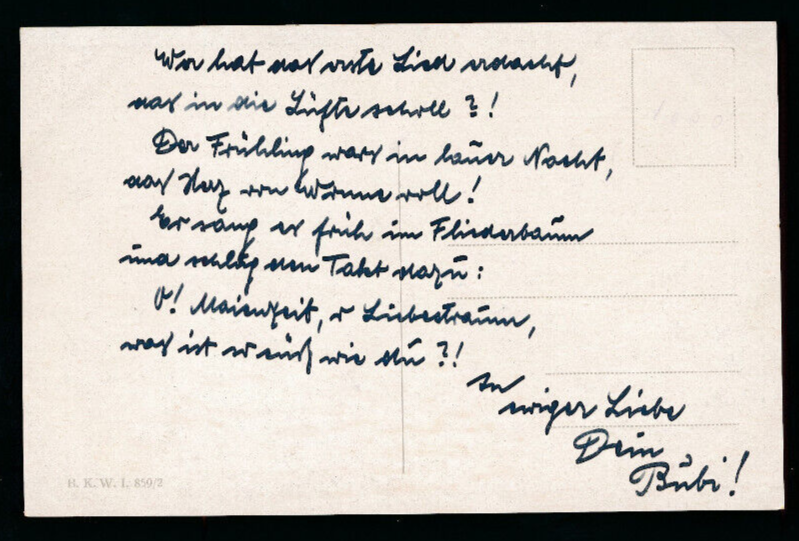 Wer hat das erste Lied erdacht,
das in die Lüfte scholl ?!
Der Frühling wars in lauer Nacht,
das Herz von Wonne voll!
Er sang es früh im Fliederbaum
und schlug den Takt dazu:
O! Maienzeit, o Liebestraum,
was ist so süß wie du ?!
In
ewiger Liebe
Dein
Bubi!
B. K. W. I. 859/2